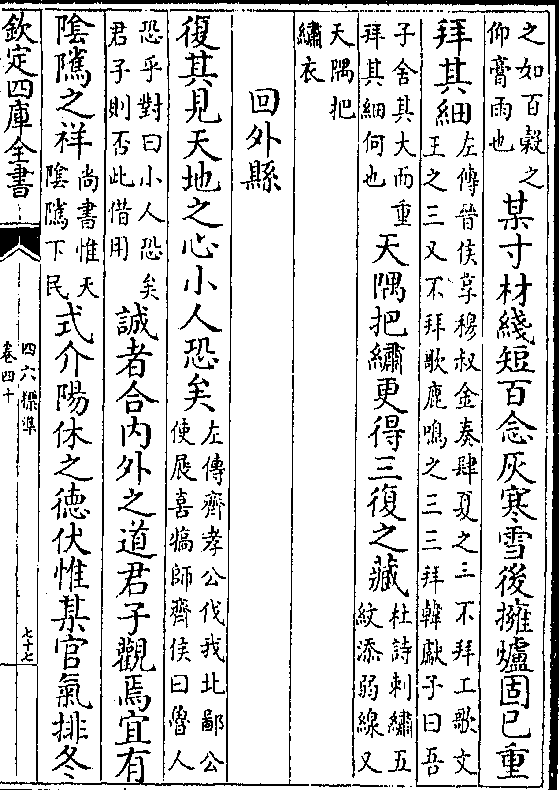 之如百穀之
仰膏雨也
某寸材綫短百念灰寒雪後擁爐固已重
拜其細
左傳晉侯享穆叔金奏肆夏之三不拜工歌文
王之三又不拜歌鹿鳴之三三拜韓獻子曰吾
子舍其大而重
拜其細何也
天隅把繡更得三復之藏
杜詩刺繡五
紋添弱線又
天隅把
繡衣
回外縣
復其見天地之心小人恐矣
左傳齊孝公伐我北鄙公
使展喜犒師齊侯曰魯人
恐乎對曰小人恐矣
君子則否此借用
誠者合内外之道君子觀焉宜有
陰隲之祥
尚書惟天
陰隲下民
式介陽休之德伏惟某官氣排冬
欽定四庫全書
四六標準
卷四十
七十七